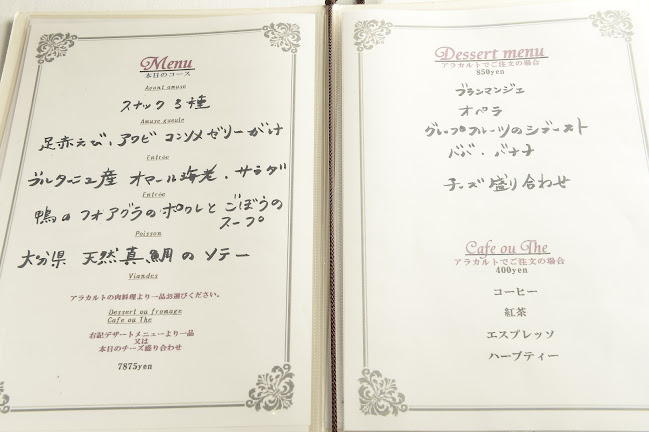 Menu
本日のコース
Avant amuse
スナック 3種
Amuse gueule
足赤えび、アワビ コンソメゼリーがけ
Entrée
ブルターニュ産 オマール海老、サラダ
Entrée
鴨のフォアグラのポワレと ごぼうの
スープ
Poisson
大分県 天然真鯛のソテー
Viandes
アラカルトの肉料理より一品お選びください。
Dessert ou fromage
Cafe ou The
右記デザートメニューより一品
又は
本日のチーズ盛り合わせ
7875yen
Dessert menu
アラカルトでご注文の場合
850yen
ブランマンジェ
オペラ
グレープフルーツのシブースト
ババ・バナナ
チーズ盛り合わせ
Cafe ou The
アラカルトでご注文の場合
400yen
コーヒー
紅茶
エスプレッソ
ハーブティー